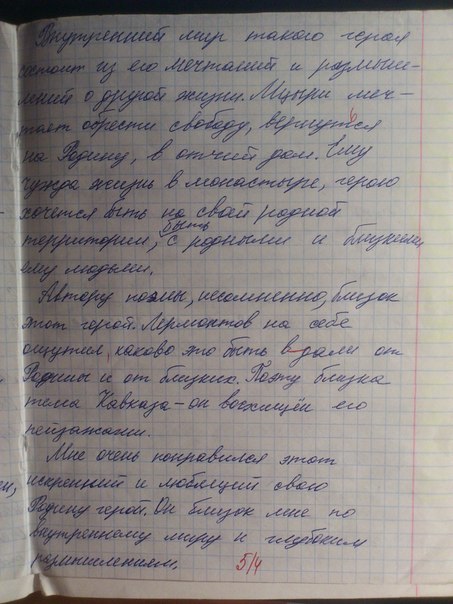 Внутренний мир такого героя
состоит из его мечтаний и размыш-
лений о другой жизни. Мцыри меч-
тает обрести свободу, вернуться
на Родину, в отчий дом. Ему
чужда жизнь в монастыре, герою
хочется быть на свой родной
территории, быть с родными и близкими
ему людьми.
Автору поэмы, несомненно, близок
этот герой. Лермонтов на себе
ощутил, каково это быть вдали от
Родины и от близких. Поэту близка
тема Кавказа - он восхищён его
пейзажами.
Мне очень понравился этот
искренний и любящий свою
Родину герой. Он близок мне по
внутреннему миру и глубоким
размышлениям.
5/4